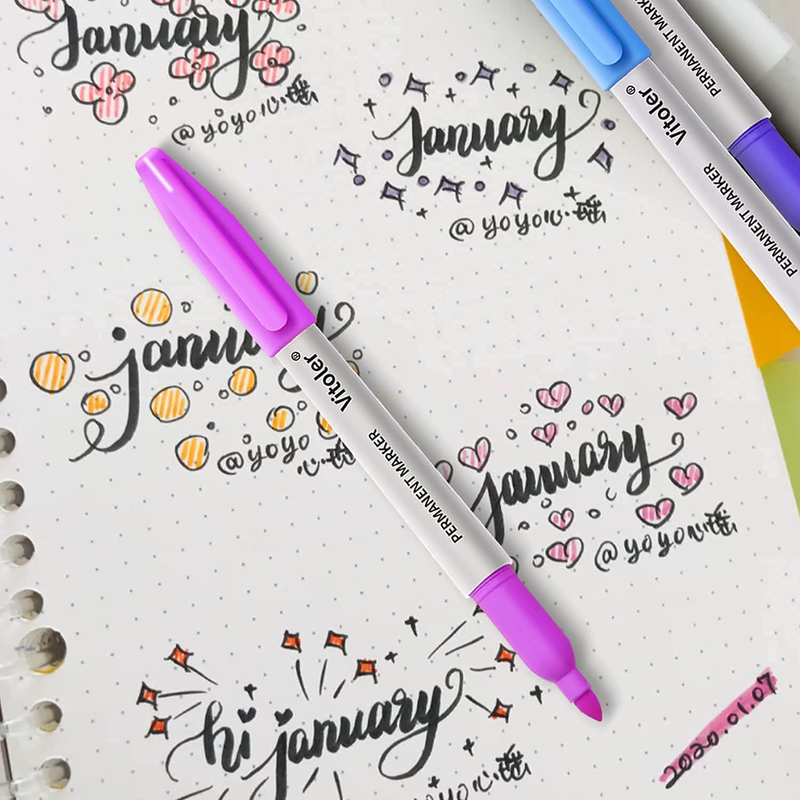 January
@yoyo心·瑶
January
@yoyo心·瑶
PERMANENT MARKER
Vitoler®
PERMANENT MARKER
PERMANENT MARKER
january
@yoyo
心·瑶
Vitoler®
PERMANENT MARKER
january
@yoyo心·瑶
hi january
心·瑶
2020.01.07